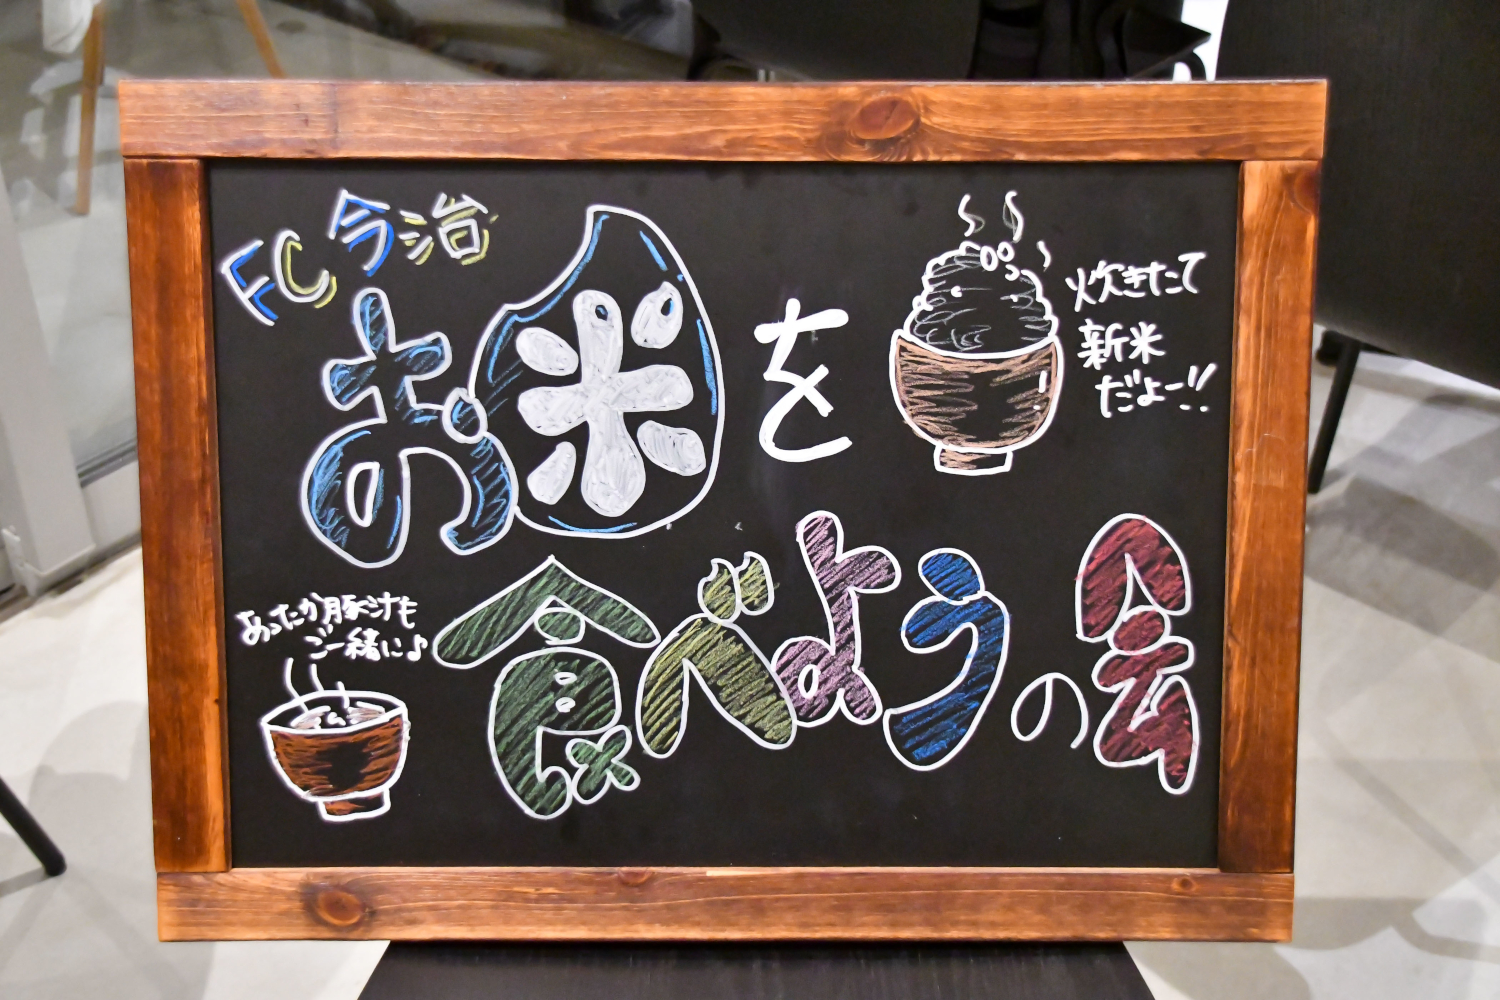 FC今治
お米を
炊きたて
新米
だよー!!
食べようの会
あったか豚汁も
ご一緒に♪